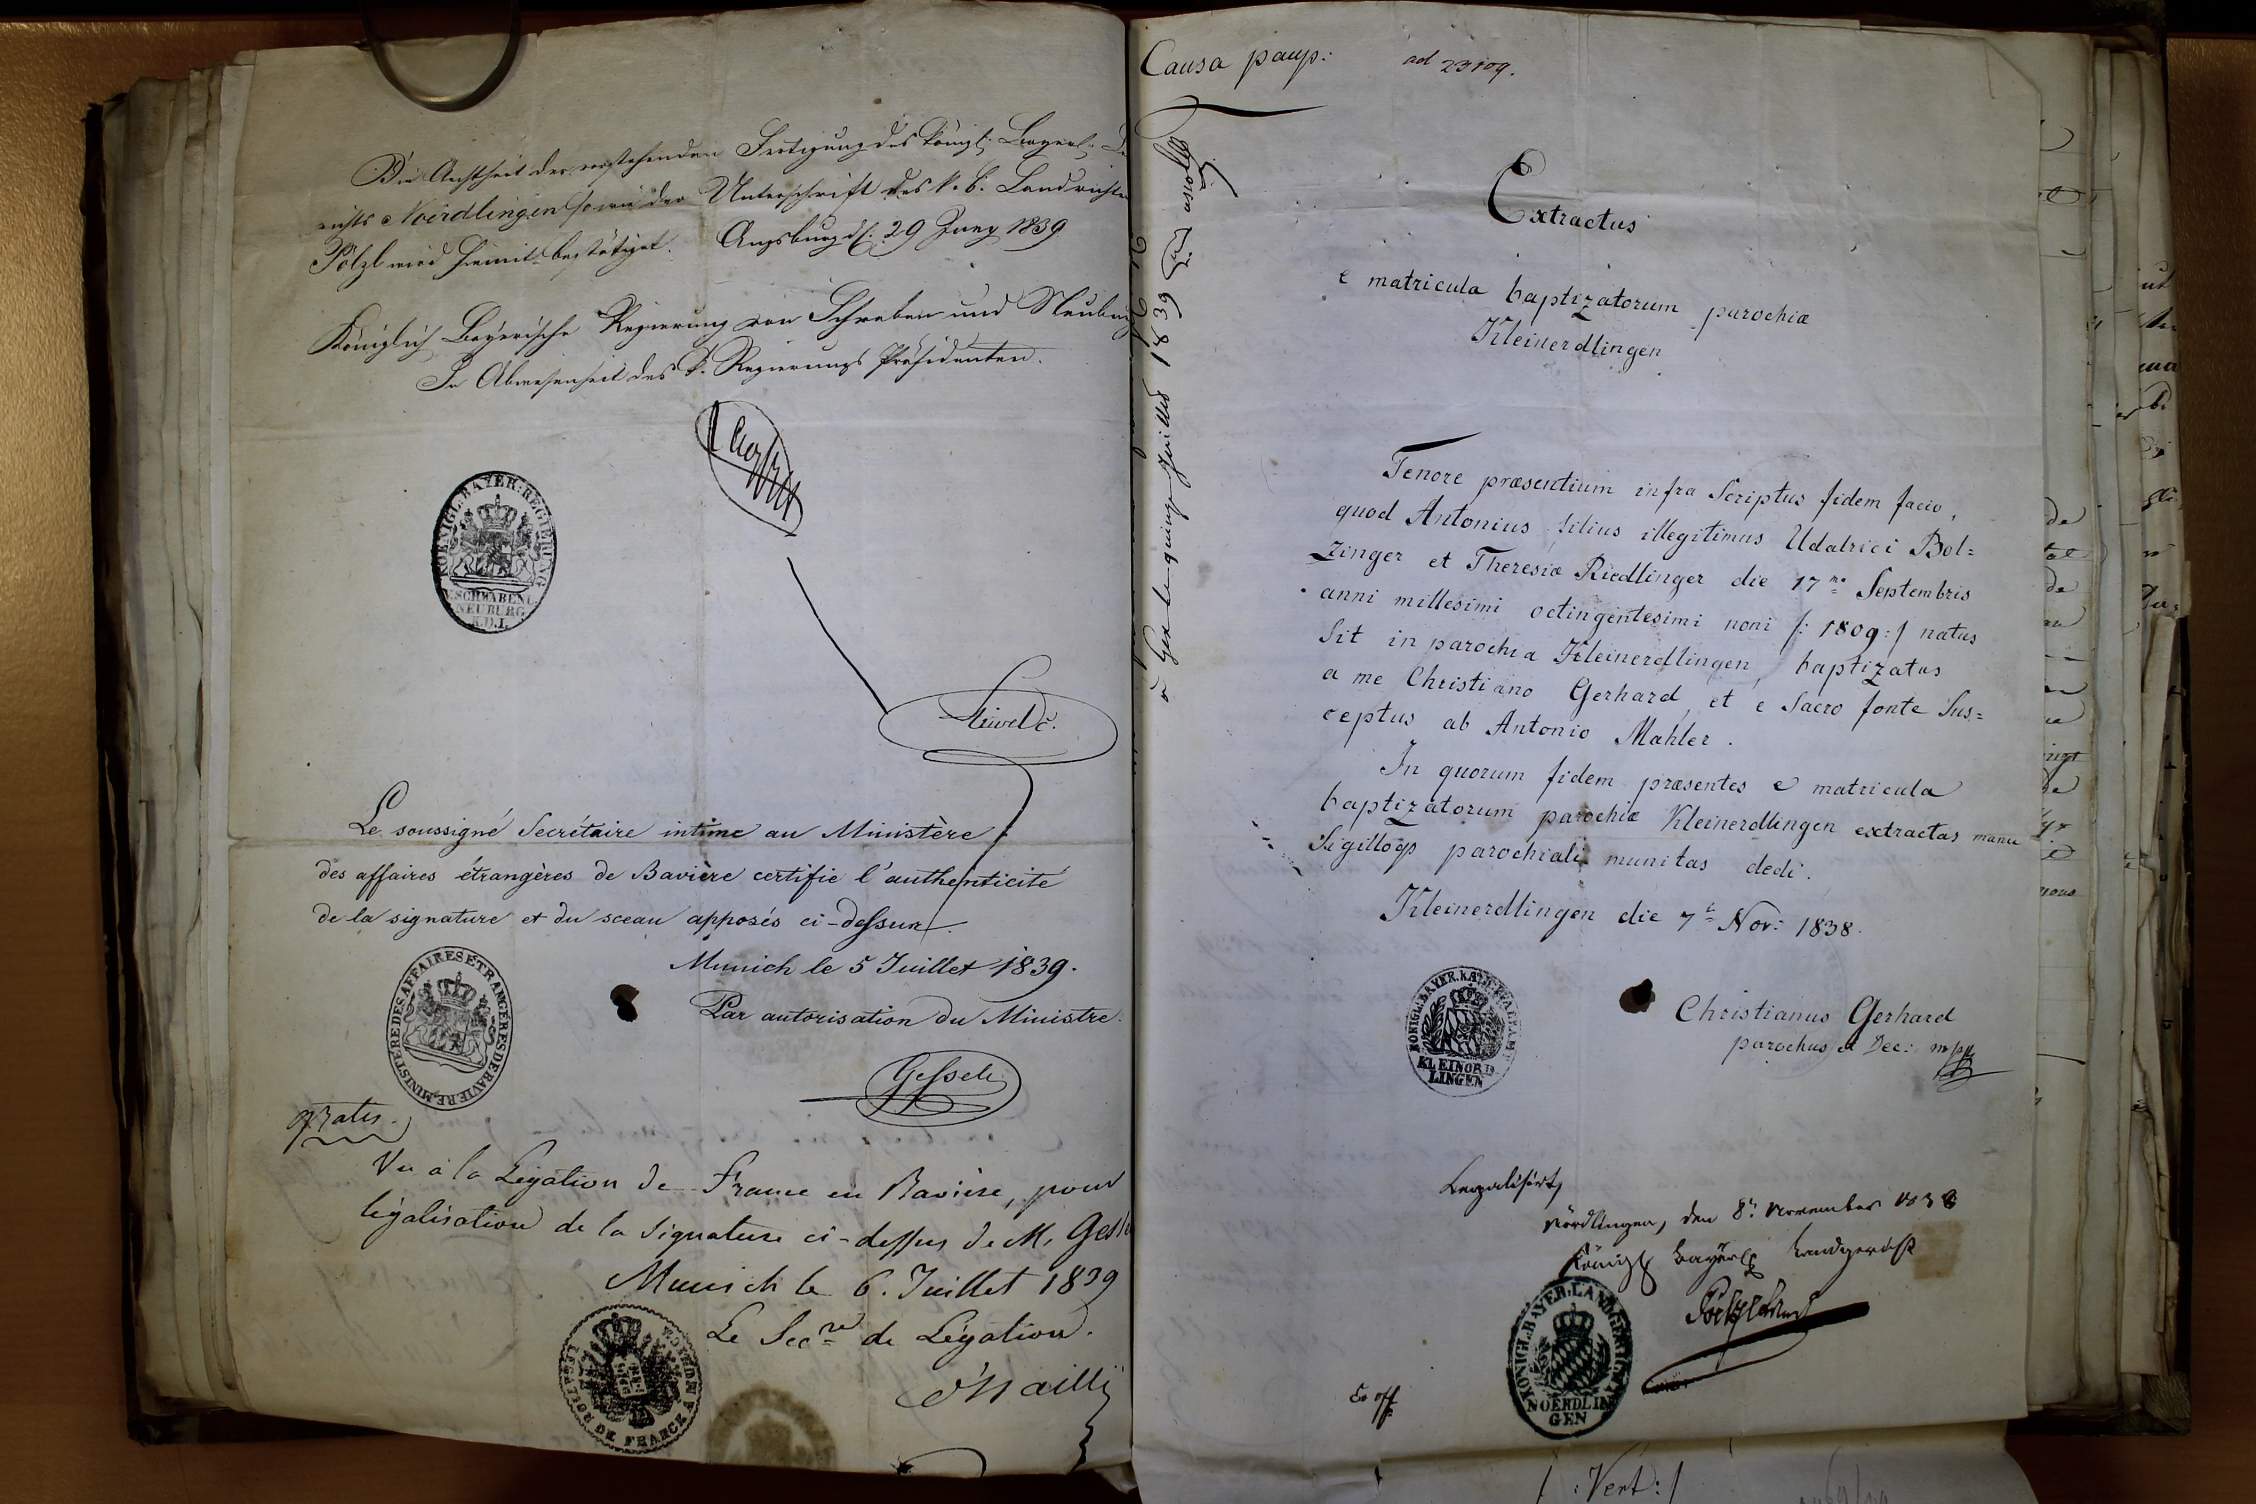 Die Aechtheit der vorstehenden Fertigung des Königl: Bayerl:
richts Noerdlingen sowie der Unterschrift des k. b. Landrichter
Pölzl wird hiemit bestätiget. Augsburg d. 29 Juny 1839
Königlich Bayerische Regierung von Schwaben und Neuburg
In Abwesenheit des k. Regierungs Präsidenten.
KOENIGL. BAYER. REGIERUNG
V. SCHWABEN U.
NEUBURG
K.D.I.
Le soussigné Secrétaire intime au Ministère
des affaires étrangères de Bavière certifie l'authenticité
de la signature et du sceau apposés ci-dessus.
Munich le 5 Juillet 1839.
Par autorisation du Ministre.
MINISTERE DES AFFAIRES ETRANGERES DE BAVIERE
Gessele
gratis.
Vu à la Légation de France en Bavière, pour
légalisation de la signature ci-dessus de M. Gess
Munich le 6. Juillet 1839
Le Secre de Légation.
LEGATION DE FRANCE
Causa paup: ad 23109.
à Gex le quinze Juillet 1839
Extractus
e matricula baptizatorum parochiæ
Kleinerdlingen
Tenore præsentium infra Scriptus fidem facio,
quod Antonius filius illegitimus Udalrici Bol=
zinger et Theresiæ Riedlinger die 17ma Septembris
anni millesimi octingentesimi noni /: 1809 :/ natus
sit in parochia Kleinerdlingen, baptizatus
a me Christiano Gerhard, et e Sacro fonte Sus=
ceptus ab Antonio Mahler.
In quorum fidem præsentes e matricula
baptizatorum parochiæ Kleinerdlingen extractas manu
Sigilloqs parochiali munitas dedi.
Kleinerdlingen die 7t Nov: 1838.
Christianus Gerhard
parochus et Dec: mpp
KÖNIGL. BAYER. KATH. PFARRAMT
KLEINORD
LINGEN
Legalisirt,
Nördlingen, den 8t. November 1838
Königl. Bayerl. Landgericht
KÖNIGL. BAYER. LANDGERICHT
NOERDLIN
GEN
Ex off.
/: Vert :/